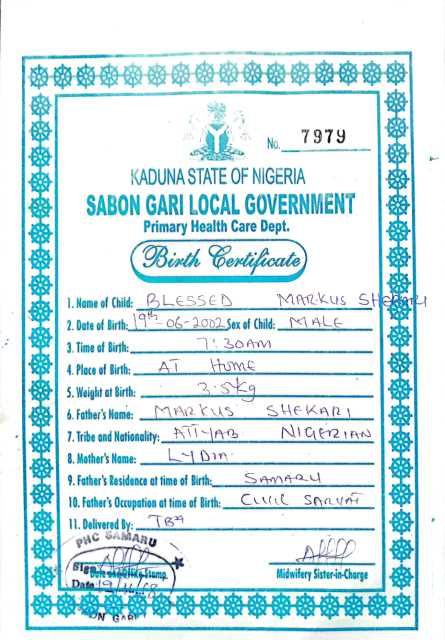 No. 7979
KADUNA STATE OF NIGERIA
SABON GARI LOCAL GOVERNMENT
Primary Health Care Dept.
Birth Certificate
1. Name of Child: BLESSED MARKUS SHEKARI
2. Date of Birth: 19th-06-2002 Sex of Child: MALE
3. Time of Birth: 7:30AM
4. Place of Birth: AT HOME
5. Weight at Birth: 3.5kg
6. Father's Name: MARKUS SHEKARI
7. Tribe and Nationality: ATTYAB NIGERIAN
8. Mother's Name: LYDIA
9. Father's Residence at time of Birth: SAMARU
10. Father's Occupation at time of Birth: CIVIL SARVAT
11. Delivered By: TBA
PHC SAMARU
Sign
Date
Midwifery Sister-in-Charge